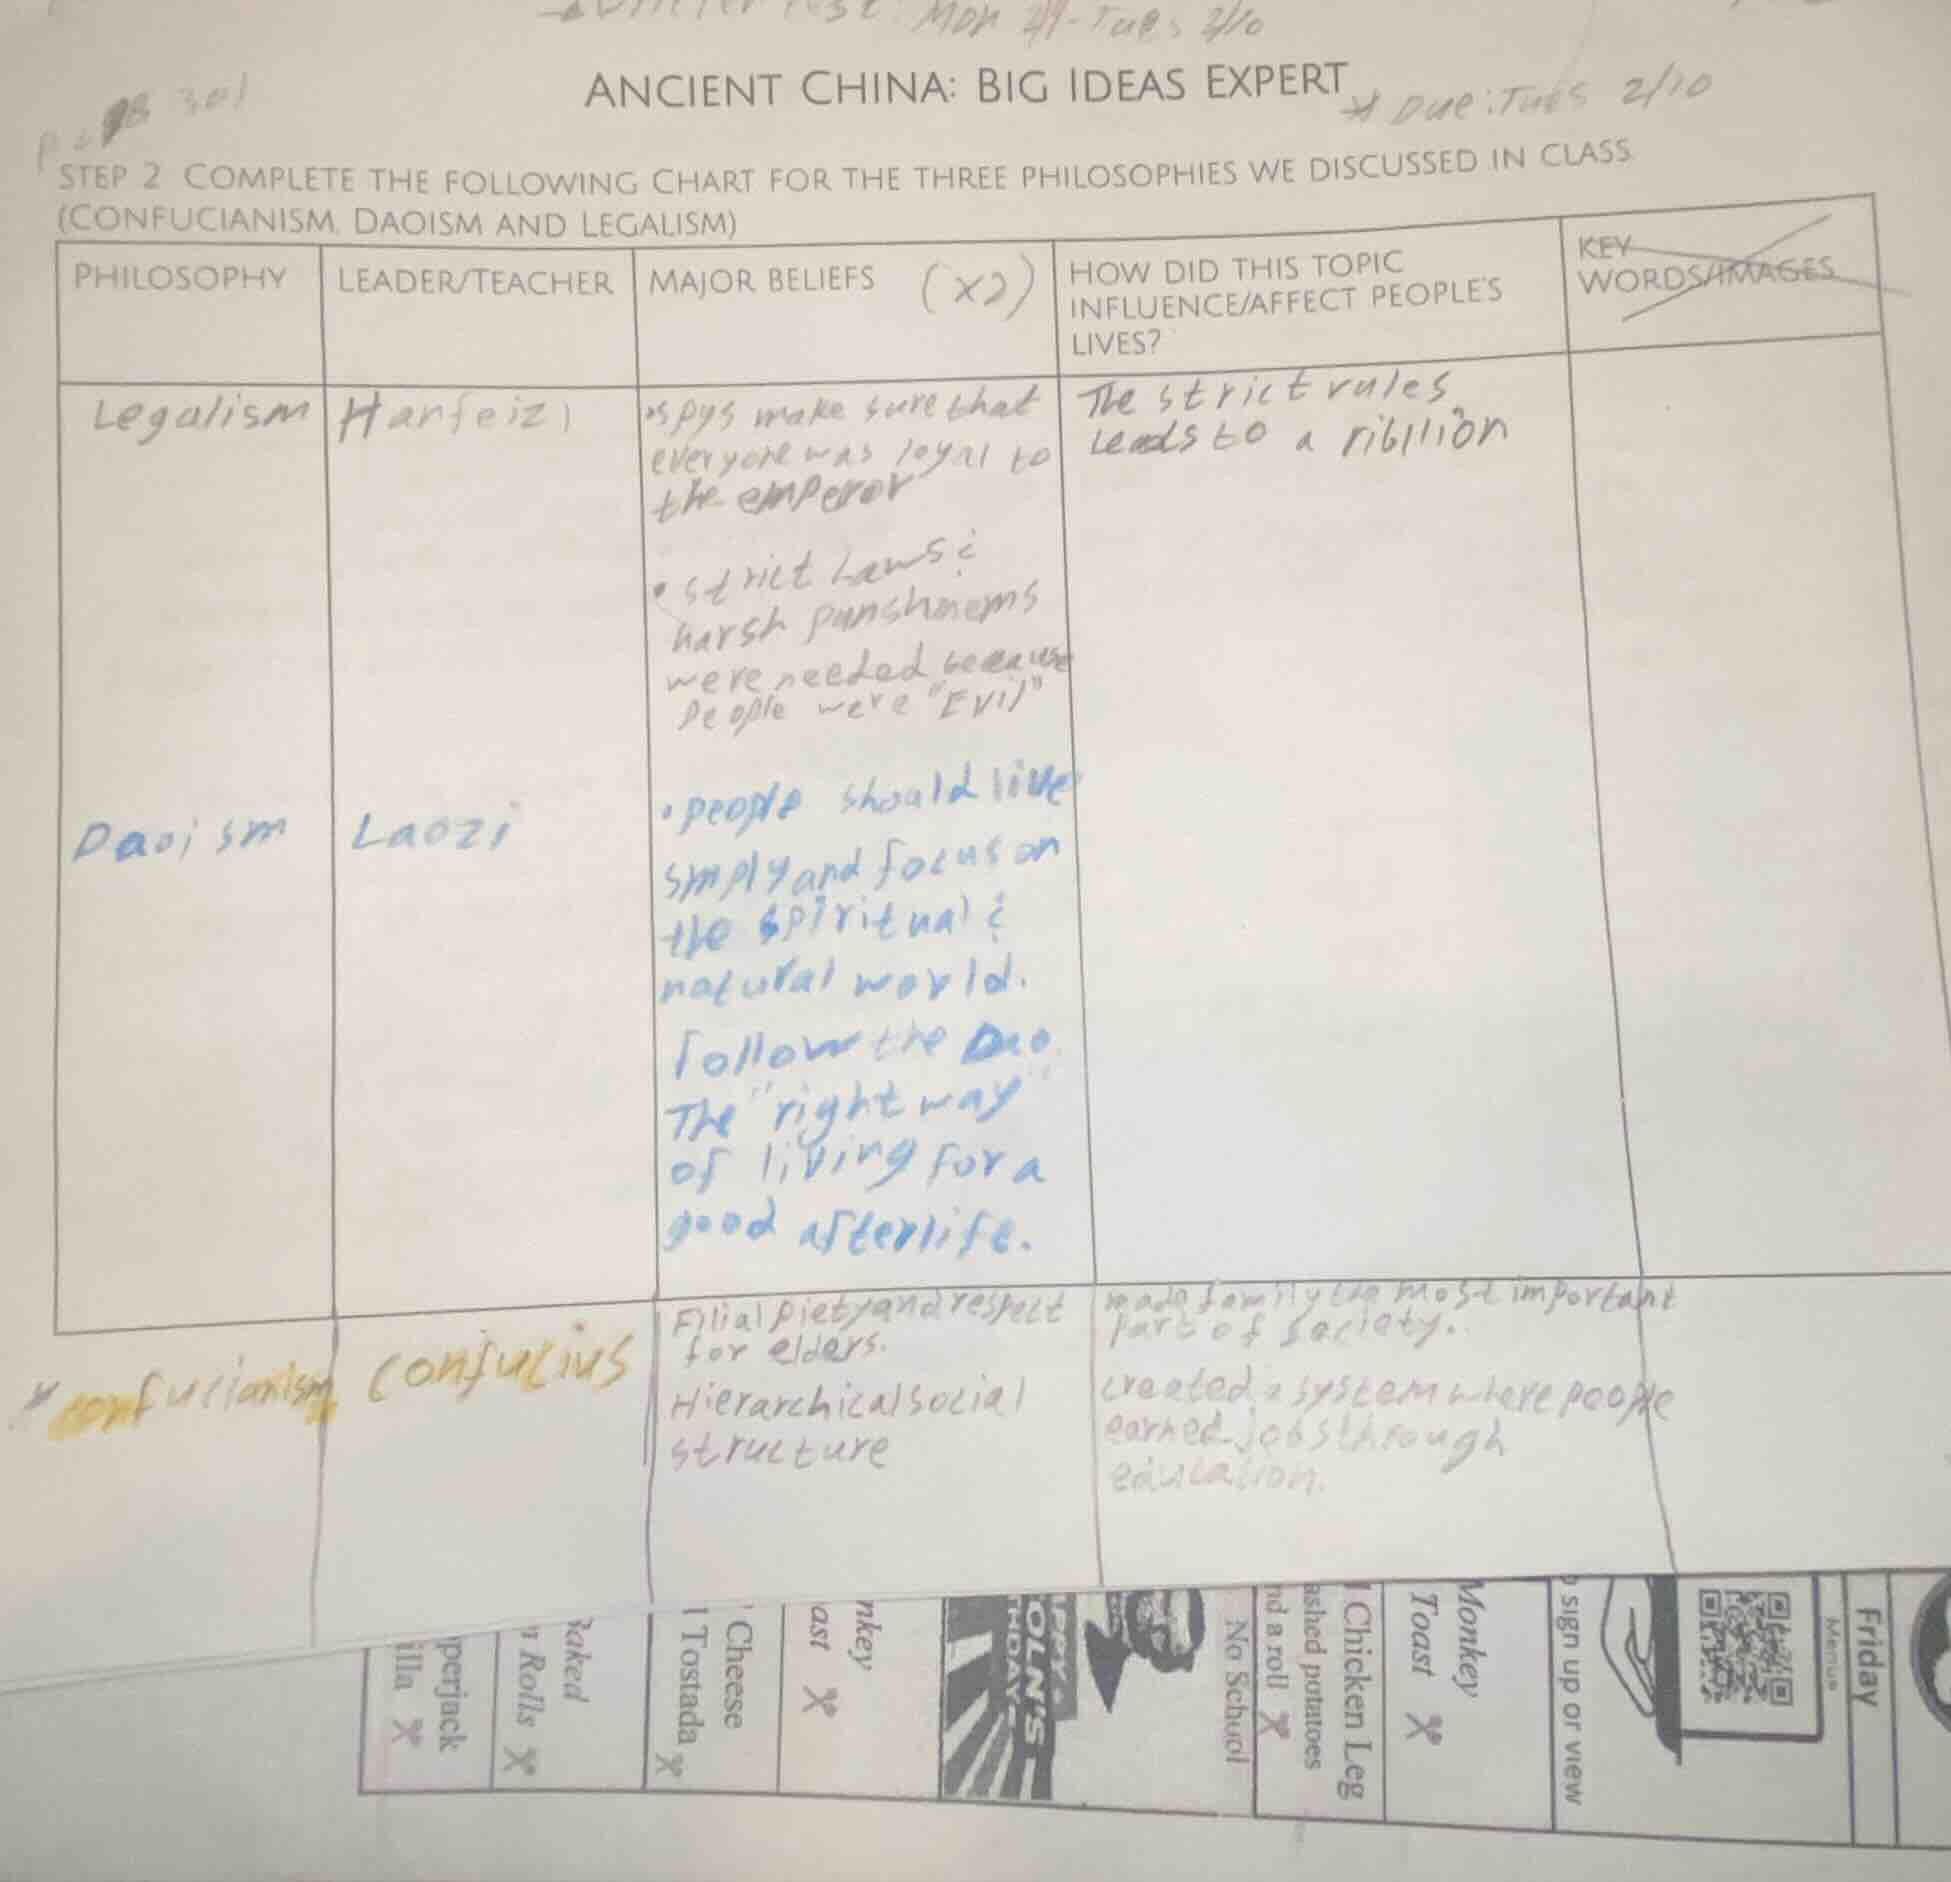 Mon 2/9-Tues 2/10
ANCIENT CHINA: BIG IDEAS EXPERT
* Due: Tues 2/10
301
STEP 2 COMPLETE THE FOLLOWING CHART FOR THE THREE PHILOSOPHIES WE DISCUSSED IN CLASS
(CONFUCIANISM, DAOISM AND LEGALISM)
PHILOSOPHY
LEADER/TEACHER
MAJOR BELIEFS (x2)
HOW DID THIS TOPIC
INFLUENCE/AFFECT PEOPLE'S
LIVES?
KEY
WORDS/IMAGES
Legalism
Hanfeizi
•spys make sure that
everyone was loyal to
the emperor
• strict Laws &
harsh punshmems
were needed because
people were "Evil"
The strict rules
Leads to a ribllion
Daoism
Laozi
• people should live
simply and focus on
the spiritual &
natural world.
Follow the Dao.
The "right way"
of living for a
good afterlife.
* confucianism
Confucius
Filial piety and respect
for elders.
Hierarchical social
structure
made family the most important
part of society.
created a system where people
earned jobs through
education.
perjack
illa
Baked
n Rolls
Cheese
l Tostada
nkey
ast
APPY
OLN'S
HDAY
No School
l Chicken Leg
ashed potatoes
nd a roll
Monkey
Toast
o sign up or view
Menus
Friday